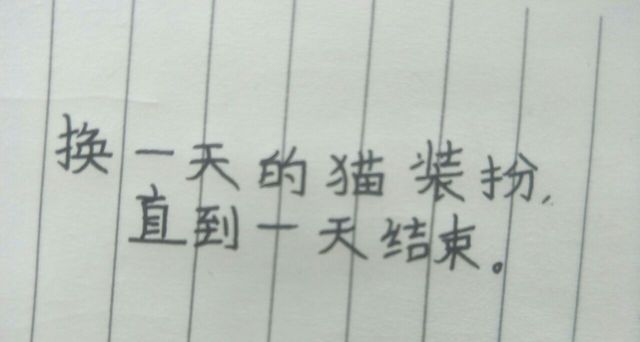 换一天的猫装扮,
直到一天结束。